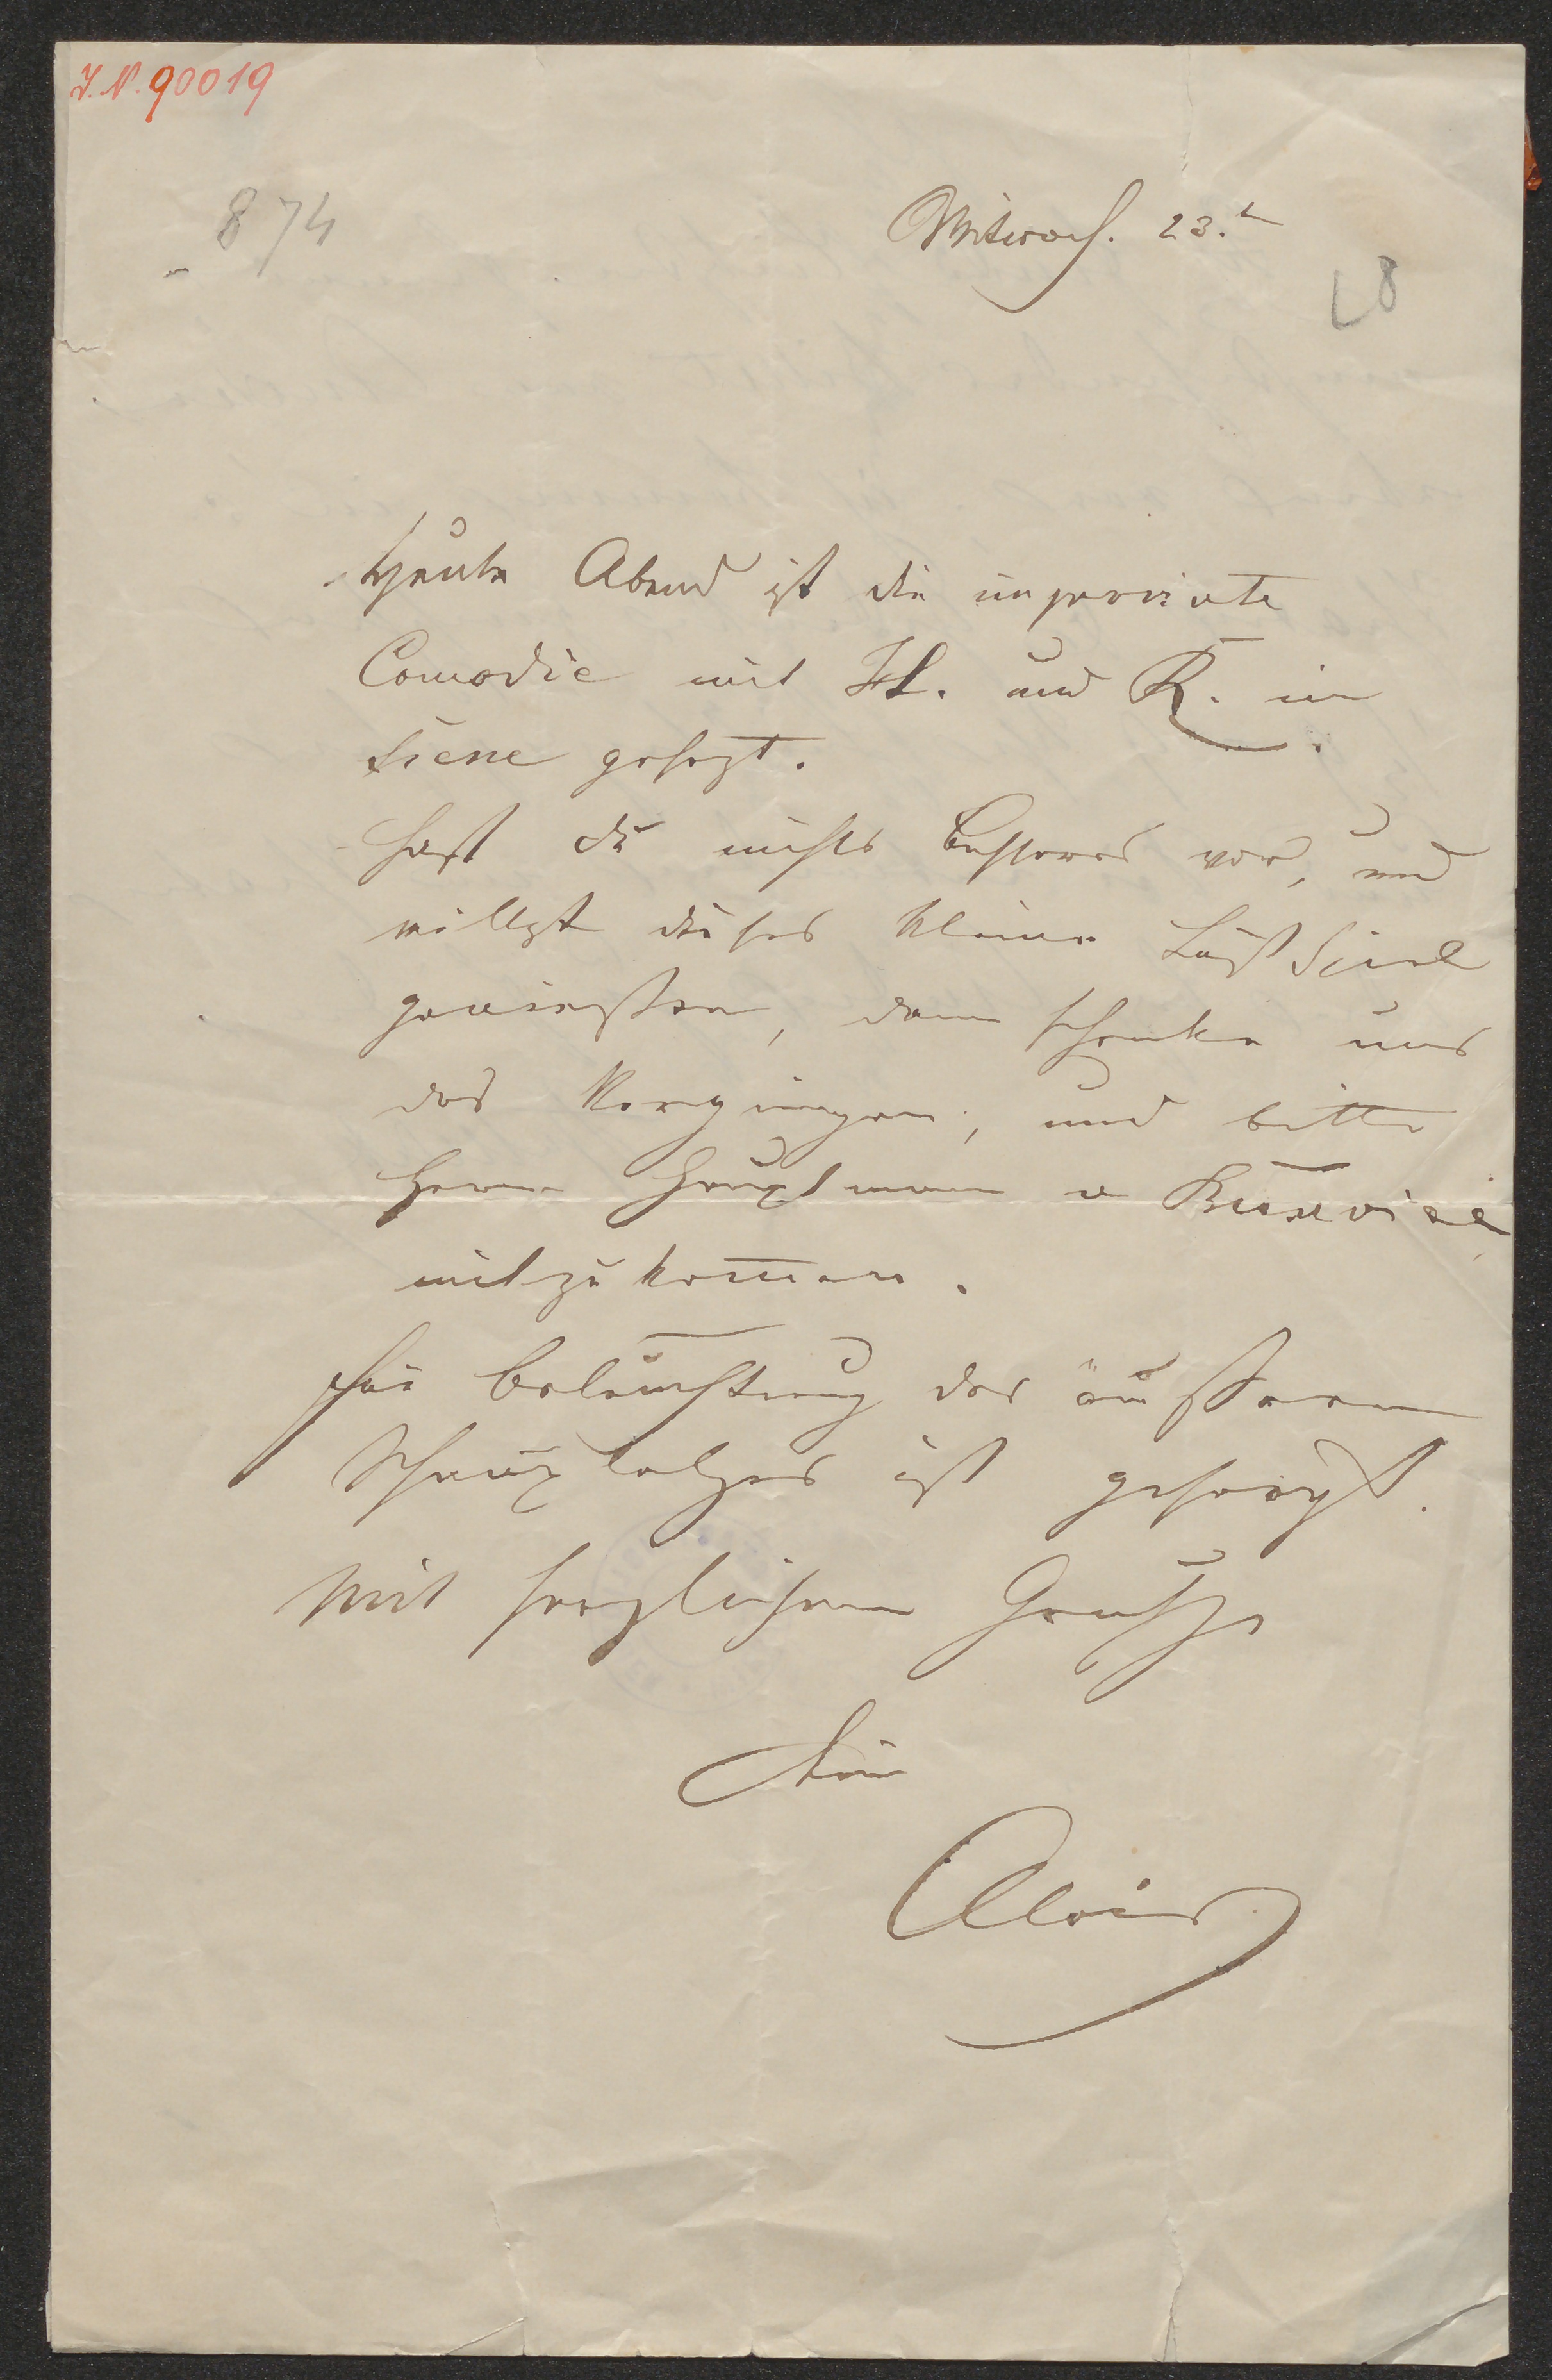 J. N. 90019
874
Mitwoch. 23.t
L8
Heute Abend ist die
Comodie mit H. und R. in
Scene gesezt.
Hast du nichts Besseres vor, und
willst dieses kleine Lustspiel
, dann schenke uns
das Vergnügen, und bitte
Herrn Hauptmann v
mitzukommen.
Für Beleuchtung des äussern
Schauplatzes ist gesorgt.
Mit herzlichem Grusse
Dein
Alois